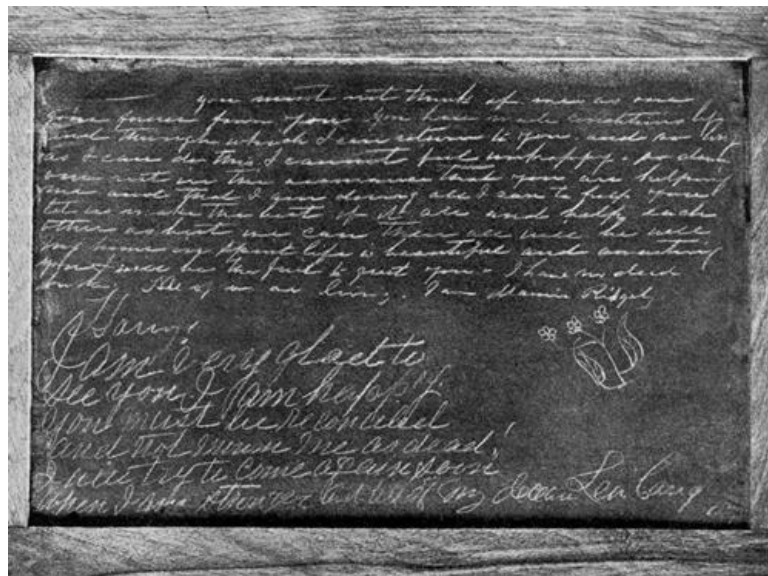 you must not think of me as one
gone from you. You have made conditions by
and through which I can return to you and so long
as I can do this I cannot feel unhappy. so do not
in the assurance that you are helping
me and that I am doing all I can to help you.
let us make the best of it all and help each
other as best we can then all will be well
my home in spirit life is beautiful and awaiting
you I will be the first to greet you. I have no dead
All of us are living. I am Mamie Ridgely
Harry
I am very glad to
see you, I am happy.
you must be reconciled
and not mourn me as dead,
I will try to come again soon
when I am stronger